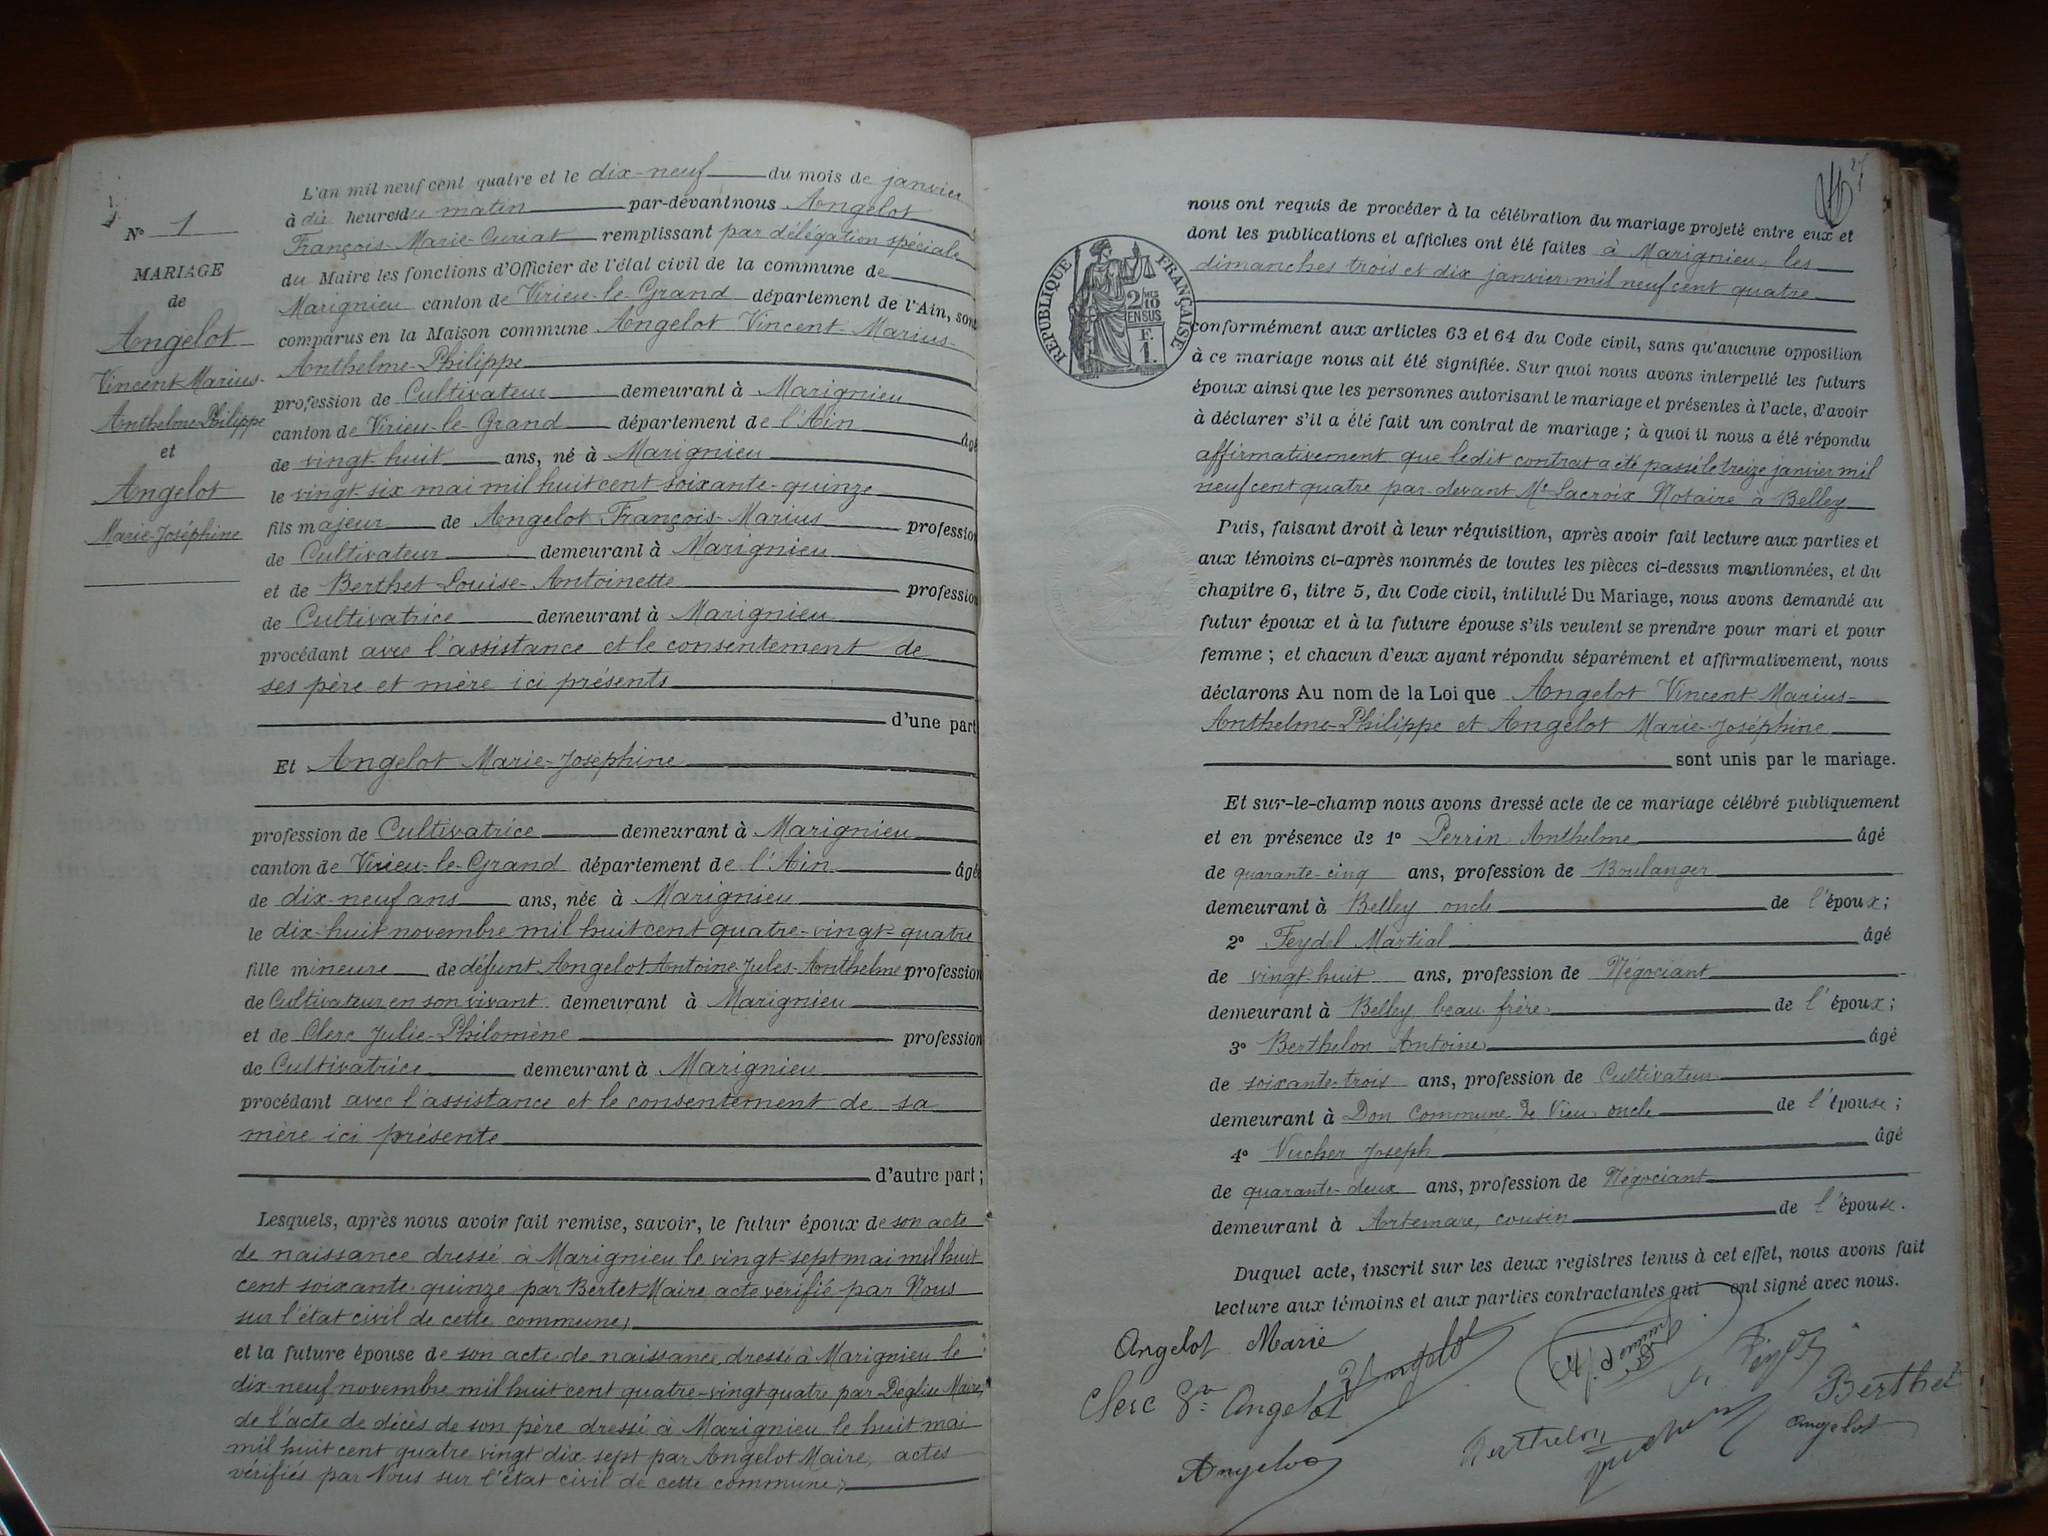 N° 1
MARIAGE
de
Angelot
Vincent-Marius-
Anthelme-Philippe
et
Angelot
Marie-Joséphine
L'an mil neuf cent quatre et le dix-neuf du mois de janvier
à dix heures du matin par-devant nous Angelot
François-Marie-Curiat remplissant par délégation spéciale
du Maire les fonctions d'Officier de l'état civil de la commune de
Marignieu canton de Virieu-le-Grand département de l'Ain, sont
comparus en la Maison commune Angelot Vincent-Marius-
Anthelme-Philippe
profession de Cultivateur demeurant à Marignieu
canton de Virieu-le-Grand département de l'Ain âgé
de vingt-huit ans, né à Marignieu
le vingt-six mai mil huit cent soixante-quinze
fils majeur de Angelot François-Marius profession
de Cultivateur demeurant à Marignieu
et de Berthet Louise-Antoinette profession
de Cultivatrice demeurant à Marignieu
procédant avec l'assistance et le consentement de
ses père et mère ici présents
d'une part
Et Angelot Marie-Joséphine
profession de Cultivatrice demeurant à Marignieu
canton de Virieu-le-Grand département de l'Ain âgée
de dix-neuf ans ans, née à Marignieu
le dix-huit novembre mil huit cent quatre-vingt-quatre
fille mineure de défunt Angelot Antoine-Jules-Anthelme profession
de Cultivateur en son vivant demeurant à Marignieu
et de Clerc Julie-Philomène profession
de Cultivatrice demeurant à Marignieu
procédant avec l'assistance et le consentement de sa
mère ici présente
d'autre part ;
Lesquels, après nous avoir fait remise, savoir, le futur époux de son acte
de naissance dressé à Marignieu le vingt-sept mai mil huit
cent soixante-quinze par Bertet Maire, acte vérifié par Nous
sur l'état civil de cette commune,
et la future épouse de son acte de naissance dressé à Marignieu le
dix-neuf novembre mil huit cent quatre-vingt quatre par Deglise Maire,
de l'acte de décès de son père dressé à Marignieu le huit mai
mil huit cent quatre vingt dix sept par Angelot Maire, actes
vérifiés par Nous sur l'état civil de cette commune,
RÉPUBLIQUE FRANÇAISE
2/10 EN SUS
F.
1.
nous ont requis de procéder à la célébration du mariage projeté entre eux et
dont les publications et affiches ont été faites à Marignieu, les
dimanches trois et dix janvier mil neuf cent quatre
conformément aux articles 63 et 64 du Code civil, sans qu'aucune opposition
à ce mariage nous ait été signifiée. Sur quoi nous avons interpellé les futurs
époux ainsi que les personnes autorisant le mariage et présentes à l'acte, d'avoir
à déclarer s'il a été fait un contrat de mariage ; à quoi il nous a été répondu
affirmativement que ledit contrat a été passé le treize janvier mil
neuf cent quatre par-devant Me Lacroix Notaire à Belley
Puis, faisant droit à leur réquisition, après avoir fait lecture aux parties et
aux témoins ci-après nommés de toutes les pièces ci-dessus mentionnées, et du
chapitre 6, titre 5, du Code civil, intitulé Du Mariage, nous avons demandé au
futur époux et à la future épouse s'ils veulent se prendre pour mari et pour
femme ; et chacun d'eux ayant répondu séparément et affirmativement, nous
déclarons Au nom de la Loi que Angelot Vincent-Marius-
Anthelme-Philippe et Angelot Marie-Joséphine
sont unis par le mariage.
Et sur-le-champ nous avons dressé acte de ce mariage célébré publiquement
et en présence de 1° Perrin Anthelme âgé
de quarante-cinq ans, profession de Boulanger
demeurant à Belley oncle de l'époux ;
2° Feydel Martial âgé
de vingt-huit ans, profession de Négociant
demeurant à Belley beau frère de l'époux ;
3° Berthelon Antoine, âgé
de soixante-trois ans, profession de Cultivateur
demeurant à Don Commune de Vieu, oncle de l'épouse ;
4° Vucher Joseph âgé
de quarante-deux ans, profession de Négociant
demeurant à Artemare, cousin de l'épouse.
Duquel acte, inscrit sur les deux registres tenus à cet effet, nous avons fait
lecture aux témoins et aux parties contractantes qui ont signé avec nous.
Angelot Marie
Angelot
Clerc Ve Angelot
Berthet
Angelot
Berthelon
Angelot